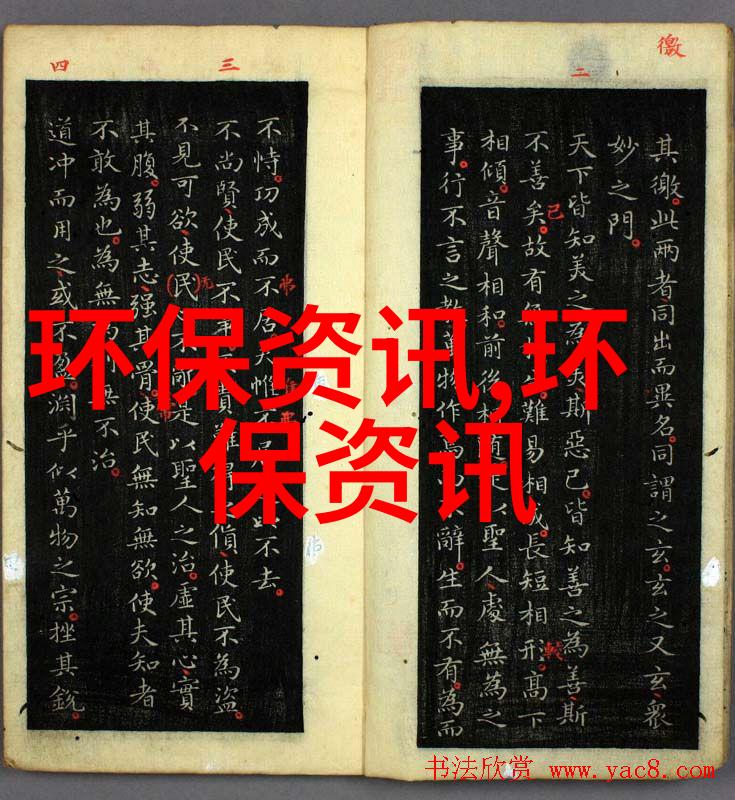 徼
二
其徼。此兩者同出而異名。同謂之玄。玄之又玄衆
妙之門。
天下皆知美之為美斯惡已。皆知善之為善斯
不善矣。故有 難易相成。長短相形。高下
相傾。音聲相和。前後相 聖人處無為之
事。行不言之教 物作焉 辭。生而不有。為而
已
較
三
四
不恃。功成而不居夫惟不 不去。
不尚賢使民不 貴難得 貨使民不為盜。
不見可欲使(民) 是以聖人之治。虛其心實
其腹。弱其志强其骨。使民無知無欲。使夫知者
不敢為也。為無 無不治。
道冲而用之或不盈。淵乎似萬物之宗。挫其銳
无
环保资讯,环
保资讯
书法欣赏 www.yac8.com